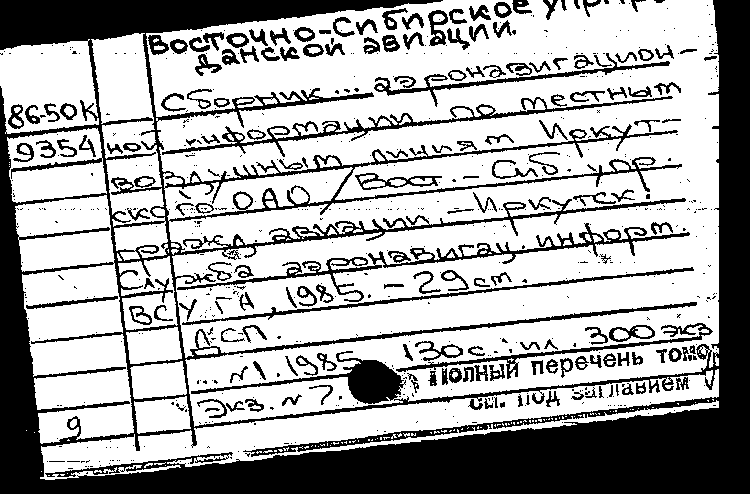 Восточно-Сибирское упр.
данской авиации.
86-50К
9354
Сборник... аэронавигацион-
ной информации по местным
воздушным линиям Иркут-
ского ОАО / Вост.-Сиб. упр.
гражд. авиации. - Иркутск:
Служба аэронавигац. информ.
ВСУ ГА, 1985. - 29 см.
ДСП.
... №1. 1985. 130с.: ил. 300 экз
Экз. №7.
Полный перечень томов
см. под заглавием
9